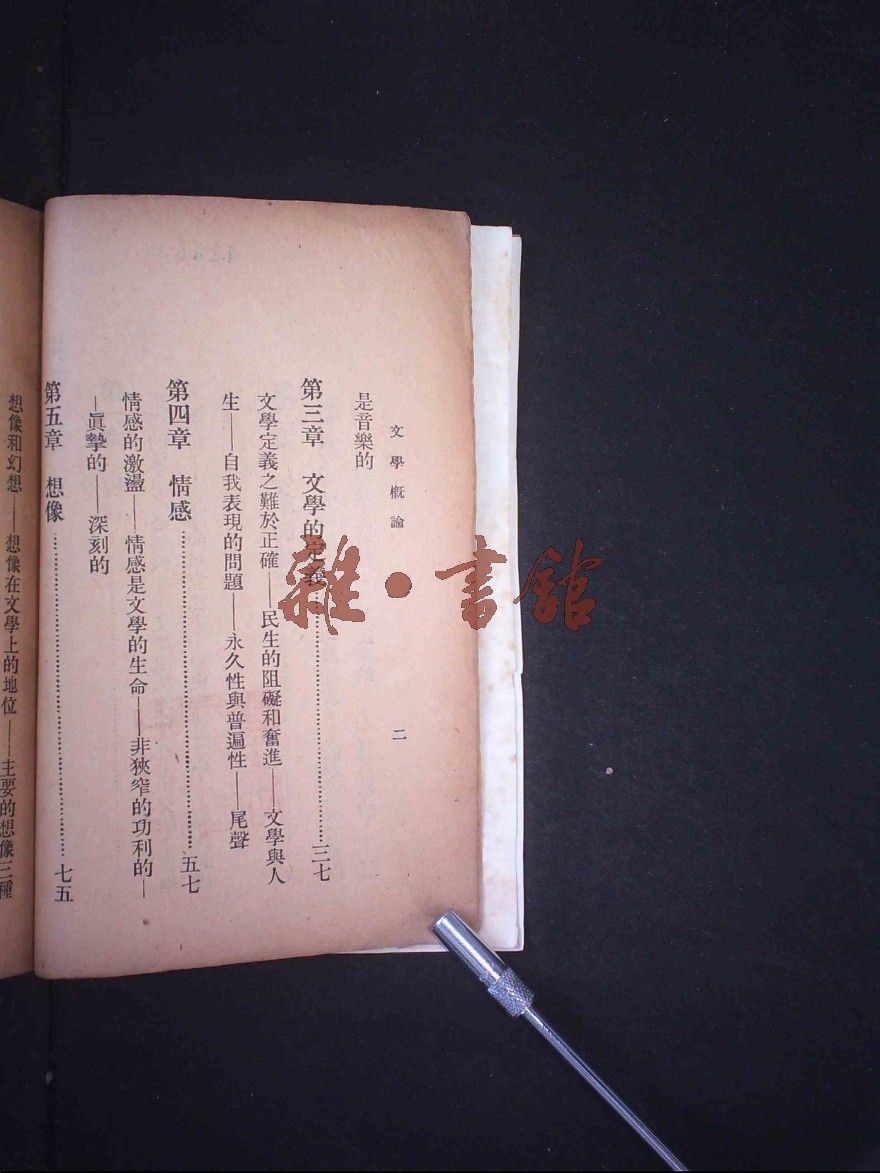 文學概論
二
是音樂的
第三章　文學的定義…………三七
文學定義之難於正確——民生的阻礙和奮進——文學與人
生——自我表現的問題——永久性與普遍性——尾聲
第四章　情感…………五七
情感的激盪——情感是文學的生命——非狹窄的功利的—
—眞摯的——深刻的
第五章　想像…………七五
想像和幻想——想像在文學上的地位——主要的想像三種
雜·書館